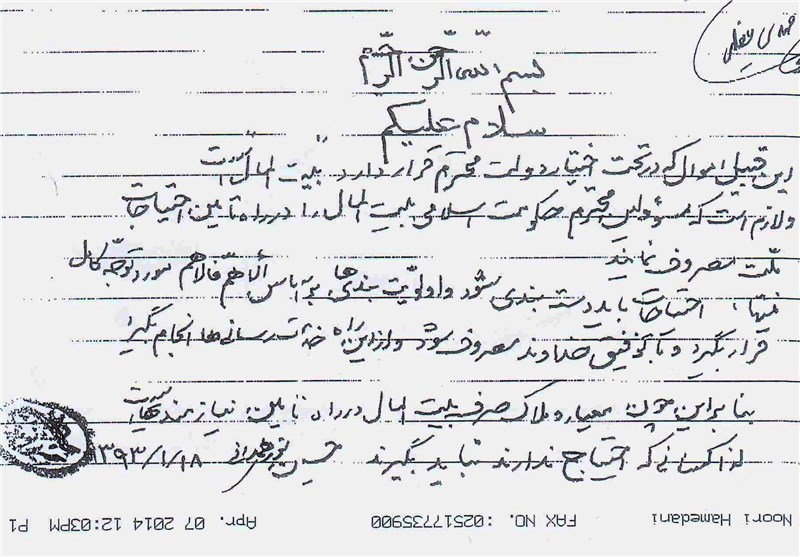 بسم الله الرحمن الرحیم
سلام علیکم
این قبیل اموال که در تحت اختیار دولت محترم قرار دارد "بیت المال" است
و لازم است که مسؤولین محترم حکومت اسلامی بیت المال را در راه تأمین احتیاجات
ملّت مصروف نمایند
منتها، احتیاجات باید دسته بندی شود و اولویّت بندی‌ها، بر اساس ألأهمّ فالأهم مورد توجّه کامل
قرار بگیرد و با توفیق خداوند مصروف شود و از این راه خدمت رسانی‌ها انجام بگیرد
بنابراین چون معیار و ملاک صرف بیت المال در راه تأمین نیازمندیهاست
لذا کسانی که احتیاج ندارند نباید بگیرند حسین نوری همدانی ۱۳۹۳/۱/۱۸
Noori Hamedani FAX NO. :02517735900 Apr. 07 2014 12:03PM P1